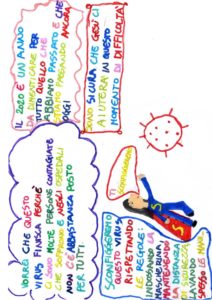 IL 2020 È UN ANNO
DA DIMENTICARE PER
TUTTO QUELLO CHE
ABBIAMO PASSATO E CHE
STIAMO PASSANDO ANCORA
OGGI
SONO SICURA CHE GESÙ CI
AIUTERÀ IN QUESTO
MOMENTO DI DIFFICOLTÀ
VORREI CHE QUESTO
VIRUS FINISCA PERCHÉ
CI SONO MOLTE PERSONE CONTAGIATE
CHE SOFFRONO E NEGLI OSPEDALI
NON C'È ABBASTANZA POSTO
PER TUTTI
SCONFIGGEREMO
QUESTO VIRUS
RISPETTANDO
LE REGOLE:
INDOSSANDO LA
MASCHERINA
MANTENENDO
LA DISTANZA
DI SICUREZZA
LAVANDO
SPESSO LE MANI
S